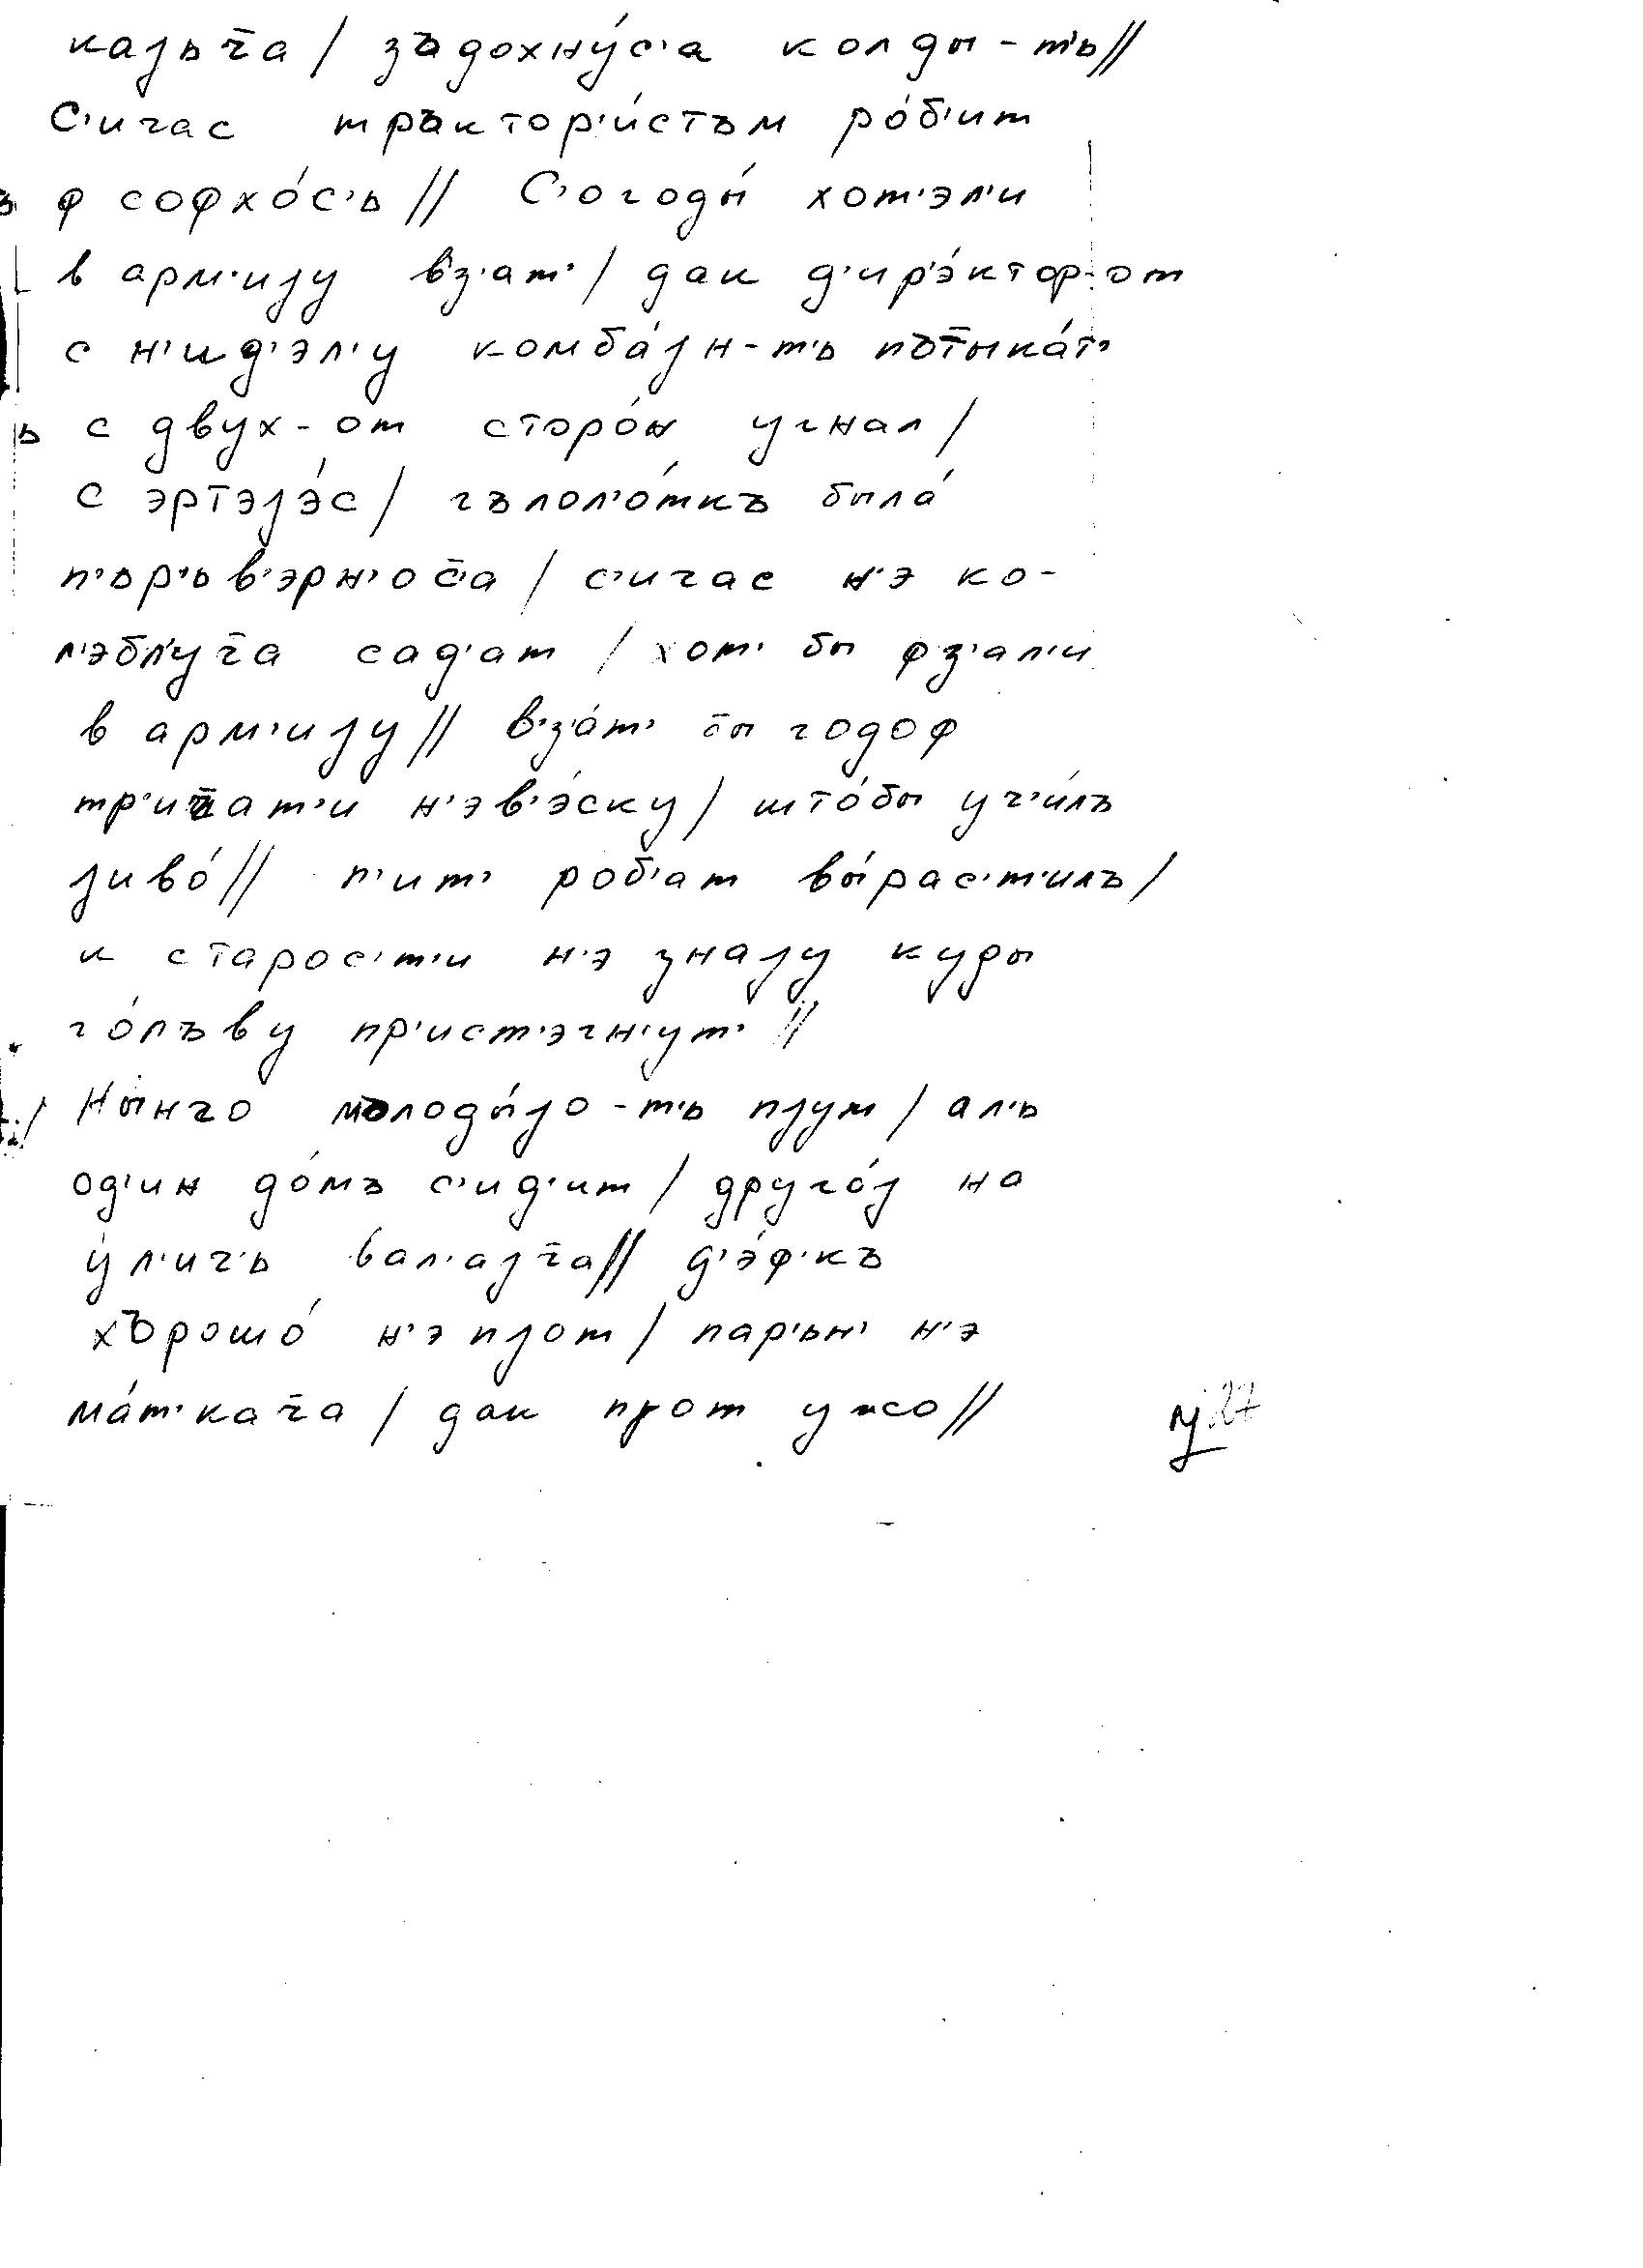 кајьч̄а / зъдохну́с'а колды-т'ь //
С'ичас тръктор'и́стъм ро́б'ит
ф софхо́с'ь // С'огоды́ хот'эл'и
в арм'ију вз'ат' / дак д'ирэ́ктор-от
с н'ид'эл'у комба́јн-т'ь път̄ыка́т'
с двух-от сторо́н угнал /
с эртэјэ́с / гълол'о́ткъ была́
п'ьр'ьв'эрн'ос̄'а / с'ичас н'э ко-
л'эбл'уч̄а сад'ат / хот' бы фз'ал'и
в арм'ију // в'з'а́т' бы годоф
тр'ич̄ат'и н'эв'э́ску / што́бы уч'и́лъ
јиво́ // п'ит' роб'ат вы́рас'т'илъ /
к старос'т'и н'э знају куды
го́лъву пр'ист'эгн'ут' //
Ны́нчо мълоды́јо-т'ь пјут / ал'ь
од'ин до́мъ с'ид'ит / друго́ј на
у́л'ич'ь вал'ајч̄а // д'э́ф'къ
хърошо́ н'э пјот / пар'ьн' н'э
ма́т'кач̄а / дак пјот ужо //
27